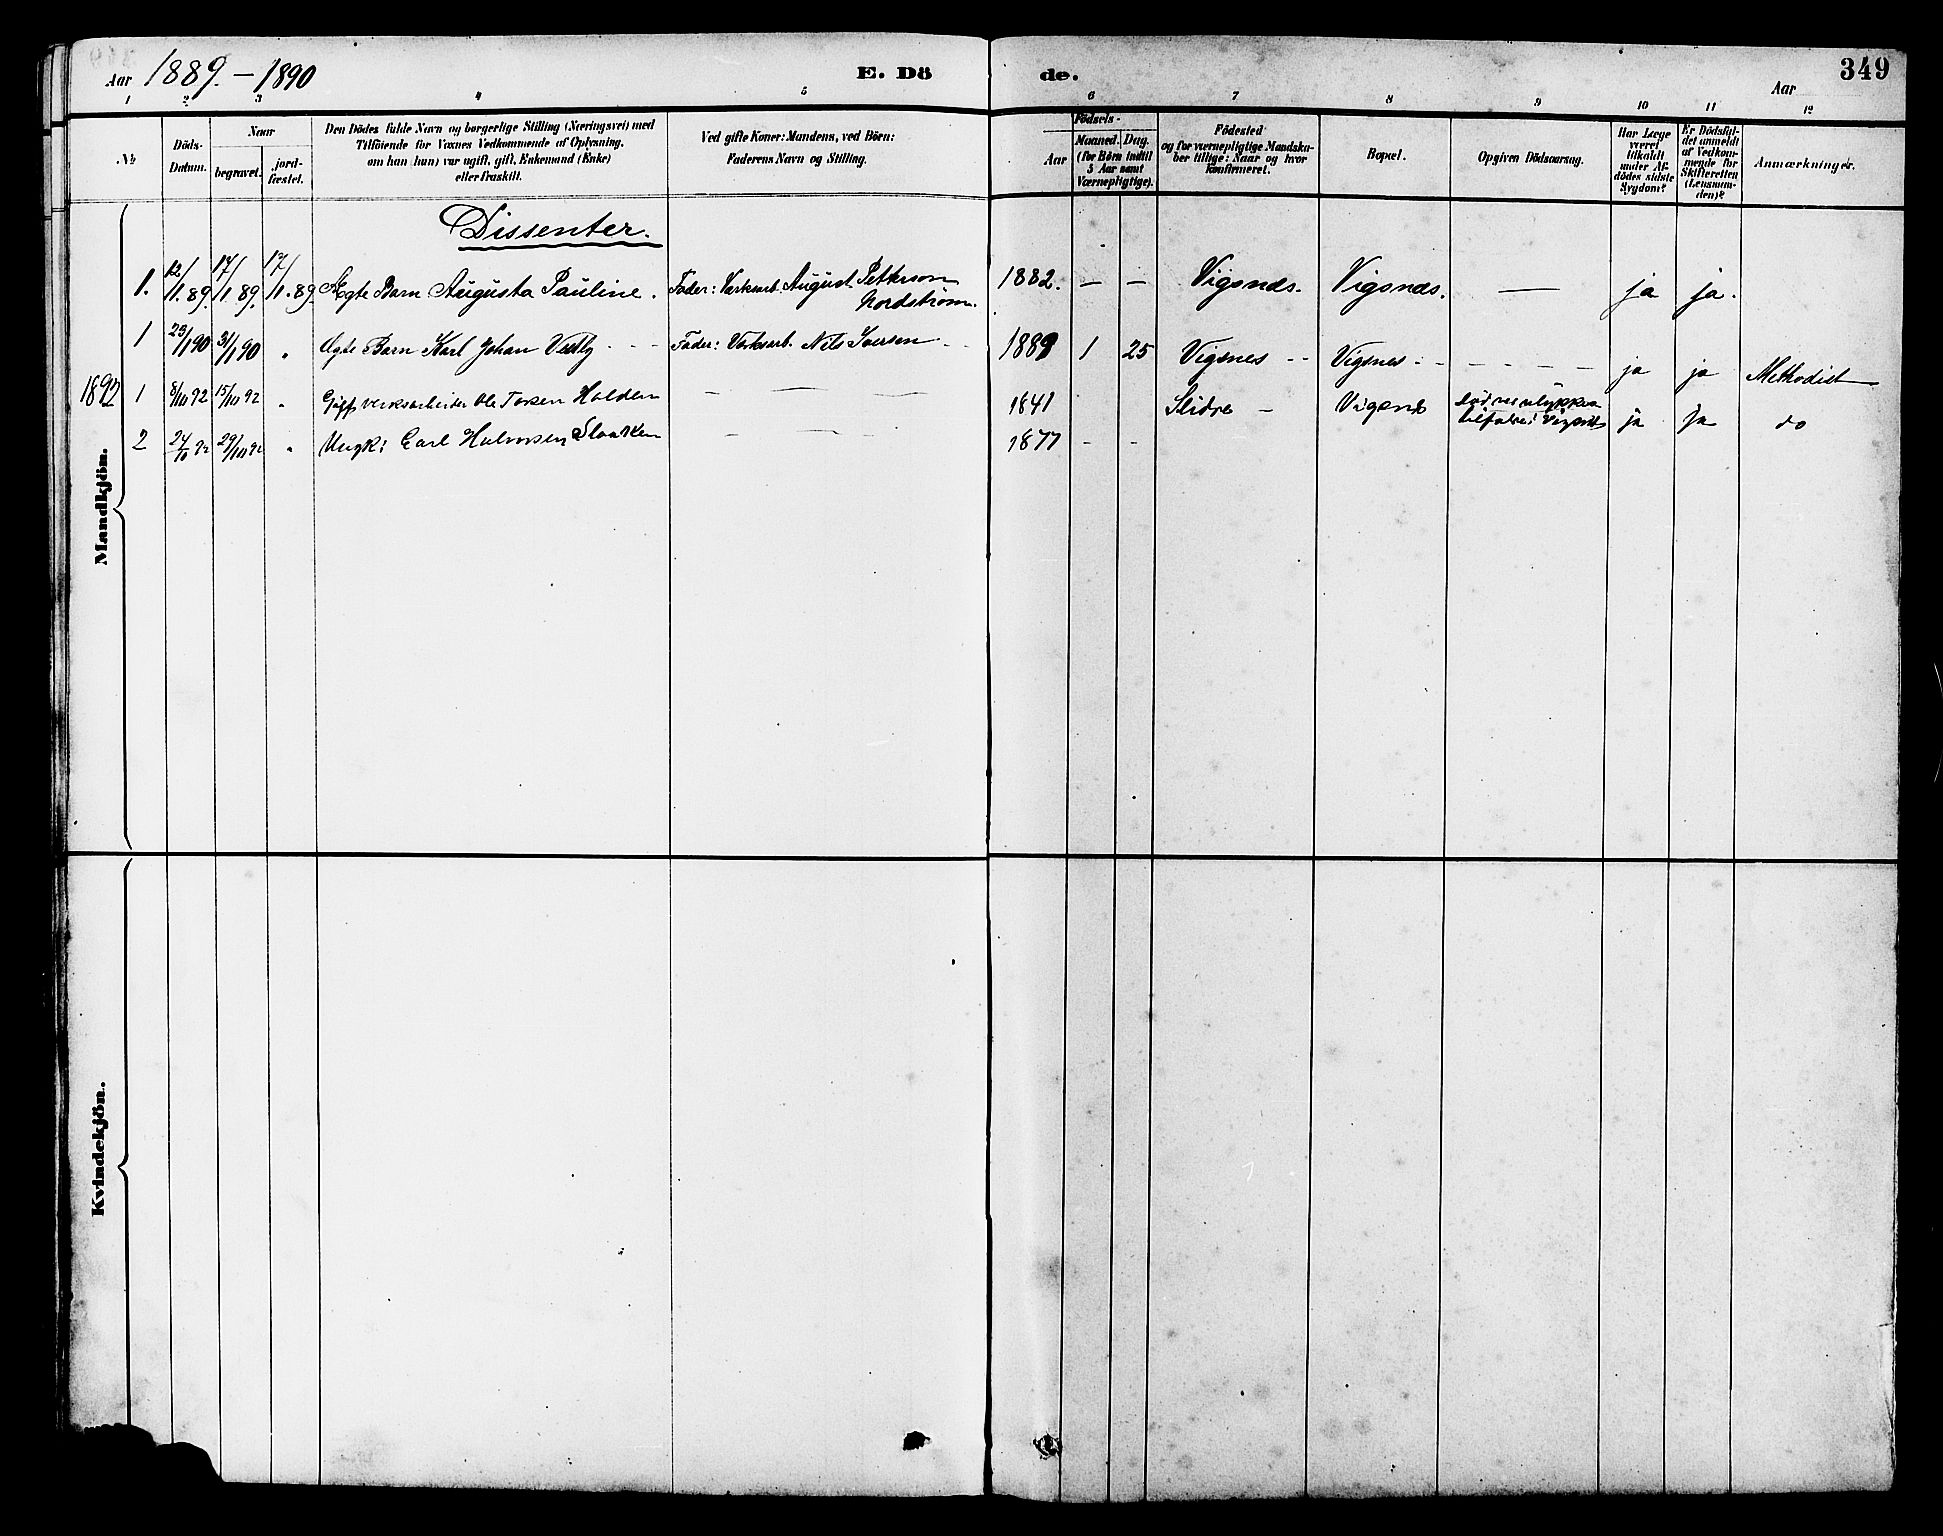 Aar 1889.–1890 E. Dö de. Aar 349
1 2 3 4 5 6 7 8 9 10 11 12
№
Döds-
Datum.
Naar
begravet.
jord-
fæstet.
Den Dödes fulde Navn og borgerlige Stilling (Næringsvei) med
Tilföiende for Voxnes Vedkommende af Oplysning,
om han (hun) var ugift, gift, Enkemand (Enke)
eller fraskilt.
Ved gifte Koner: Mandens, ved Börn:
Faderens Navn og Stilling.
Födsels-
Aar
Maaned.
Dag.
(for Börn indtil
5 Aar samt
Værnepligtige).
Födested
og for værnepligtige Mandska-
ber tillige: Naar og hvor
konfirmeret.
Bopæl.
Opgiven Dödsaarsag.
Har Læge
været
tilkaldt
under Af-
dödes sidste
Sygdom?
Er Dödsfal-
det anmeldt
af Vedkom-
mende for
Skifteretten
(Lensman-
den)?
Anmærkninger.
Mandkjön.
Dissenter.
1. 12/1.89. 17/1 89. 17/1.89 Ægte Barn Augusta Pauline. Fader: Værksarb. August Petterson
Nordström. 1882. — — Vigsnæs. Vigsnæs. — ja ja.
1 23/1 90 31/1 90 " Ægte Barn Karl Johan Vestly - - - Fader: Værksarb. Nils Iversen - - 1889 1 25 Vigsnes - - Vigsnes - - - - - - ja ja Methodist
1892 1 8/10 92 15/10 92 " Gift verksarbeider Ole Holden — — 1841 Slidre - Vigsnes död ved ulykkes
tilfælde i ja ja do
2 24/10 92 29/10 92 " Ungk: Carl — — 1877 - -
Kvindekjön.